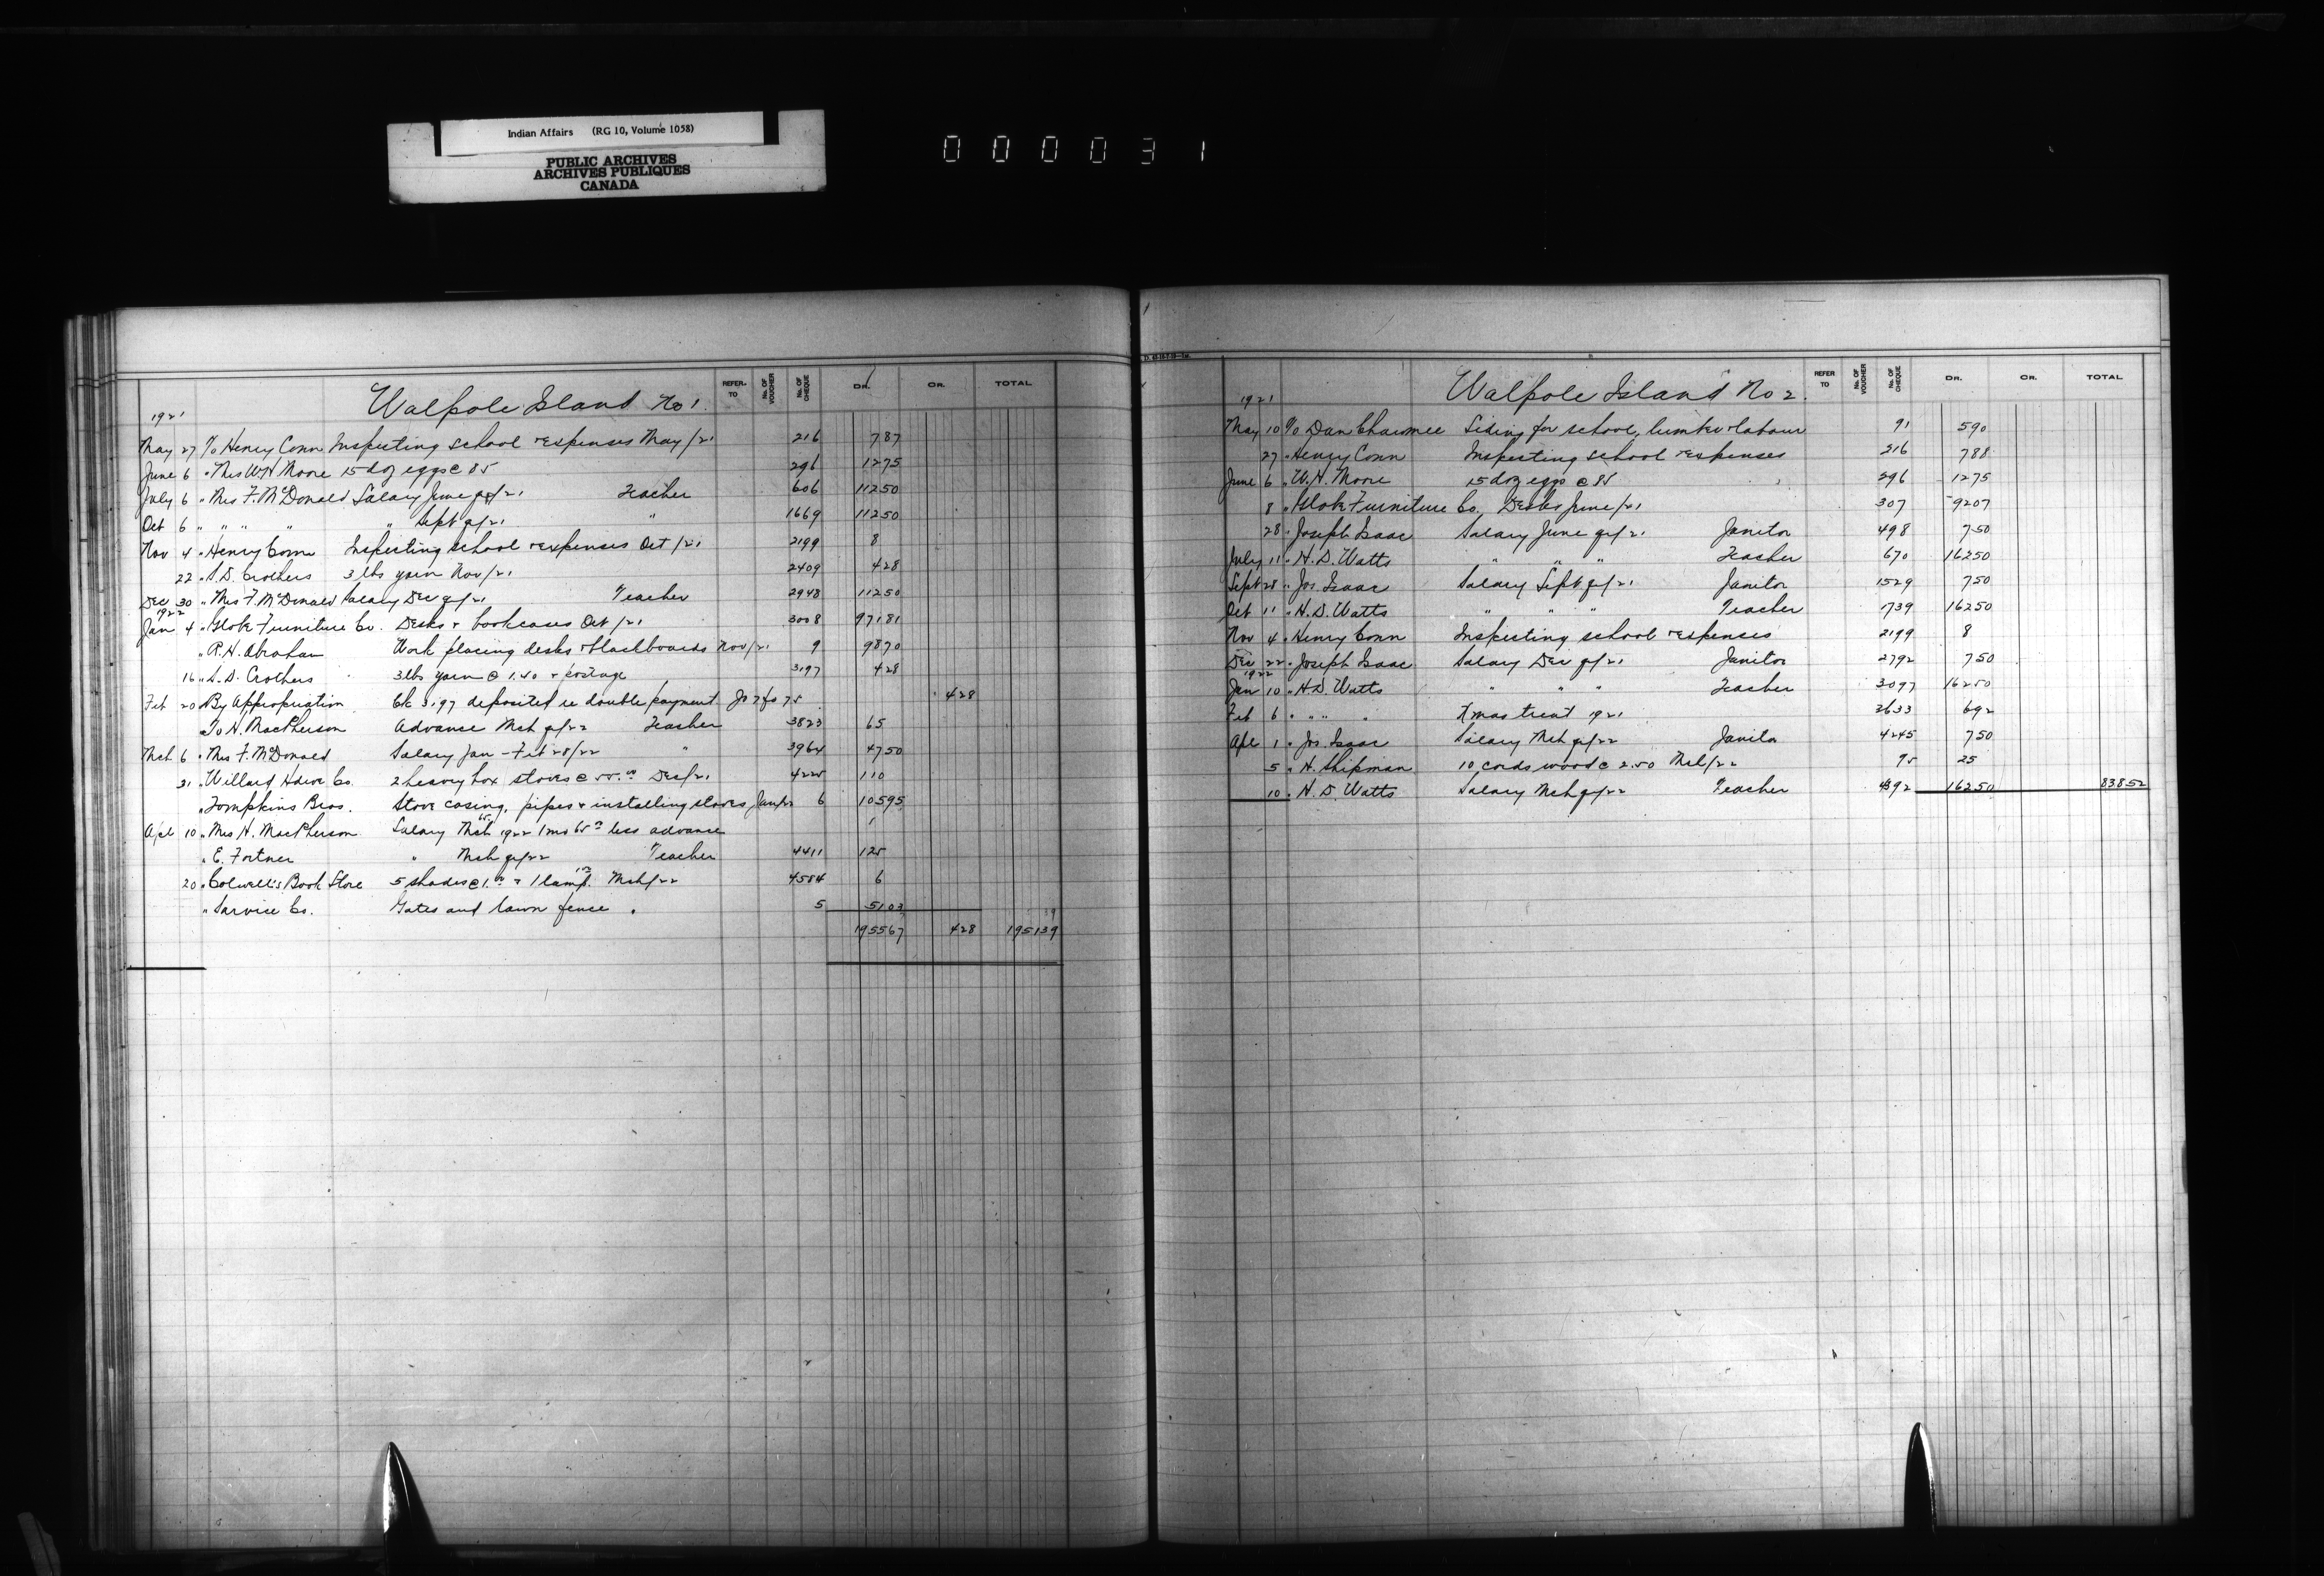 Indian Affairs (RG 10, Volume 1058)
PUBLIC ARCHIVES
ARCHIVES PUBLIQUES
CANADA
000031
Walpole Island No 1.
REFER. TO No. OF VOUCHER No. OF CHEQUE DR. CR. TOTAL
1921
May 27 To Henry Conn Inspecting school expenses May/21 216 7 87
June 6 " Mrs W.H Moore 15 doz eggs @ 85 296 12 75
July 6 " Mrs F. McDonald Salary June qr/21 Teacher 606 112 50
Oct 6 " " " " " Sept qr/21 " 1669 112 50
Nov 4 " Henry Conn Inspecting school expenses Oct/21 2199 8
22 " S.D. Crothers 3 lbs yarn Nov/21 2409 4 28
Dec 30 " Mrs F. McDonald Salary Dec qr/21 Teacher 2948 112 50
1922
Jan 4 " Globe Furniture Co. Desks & bookcases Oct/21 3008 971 81
" R.H. Abraham Work placing desks & blackboards Nov/21 9 98 70
16 " S.D. Crothers 3 lbs yarn @ 1.40 & postage 3197 4 28
Feb 20 By Appropriation Ck 3197 deposited re double payment Jo 7 fo 75 4 28
To H. MacPherson Advance Mch qr/22 Teacher 3823 65
Mch 6 " Mrs F. McDonald Salary Jan - Feb 28/22 " 3964 47 50
31 " Willard Hdwe Co. 2 heavy box stoves @ 55.00 Dec/21 4225 110
" Tompkins Bros. Stove casing, pipes & installing stoves Jan/22 6 105 95
Apl 10 " Mrs H. MacPherson Salary Mch 1922 1 mo 65 less advance
" E. Fortner " Mch qr/22 Teacher 4411 125
20 " Colwell's Book Store 5 shades @ 1.00 & 1 lamp. Mch/22 4584 6
" Sarvice Co. Gates and lawn fence 5 51 03
1955 67 4 28 1951 39
Walpole Island No 2.
REFER TO No. OF VOUCHER No. OF CHEQUE DR. CR. TOTAL
1921
May 10 To Dan Siding for school, lumber & labour 91 5 90
27 " Henry Conn Inspecting school expenses 216 7 88
June 6 " W.H. Moore 15 doz eggs @ 85 296 12 75
8 " Globe Furniture Co. Desks June/21 307 92 07
28 " Joseph Isaac Salary June qr/21 Janitor 498 7 50
July 11 " H.D. Watts " " " Teacher 670 162 50
Sept 28 " Jos. Isaac Salary Sept qr/21 Janitor 1529 7 50
Oct 11 " H.D. Watts " " " Teacher 1739 162 50
Nov 4 " Henry Conn Inspecting school expenses 2199 8
Dec 22 " Joseph Isaac Salary Dec qr/21 Janitor 2792 7 50
1922
Jan 10 " H.D. Watts " " " Teacher 3097 162 50
Feb 6 " " " " Xmas treat 1921 3633 6 92
Apl 1 " Jos. Isaac Salary Mch qr/22 Janitor 4245 7 50
5 " H. Shipman 10 cords wood @ 2.50 Mch/22 95 25
10 " H.D. Watts Salary Mch qr/22 Teacher 4392 162 50 838 52